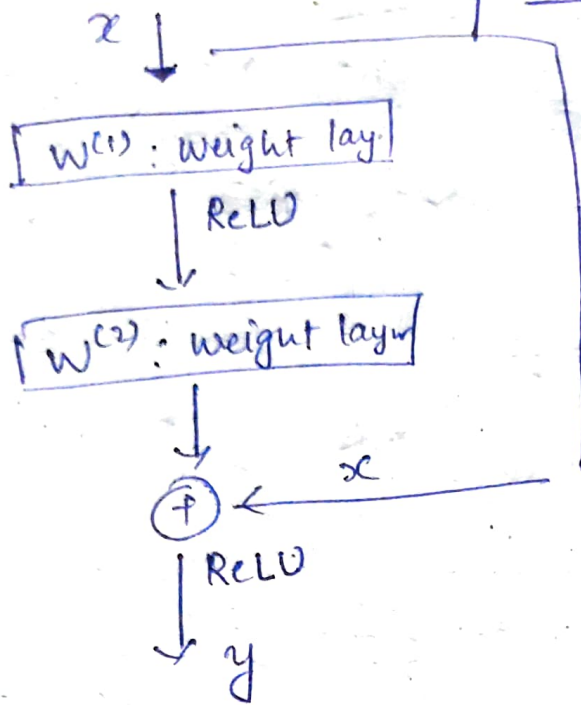 x
W(1) : weight lay.
ReLU
W(2) : weight layer
x
+
ReLU
y